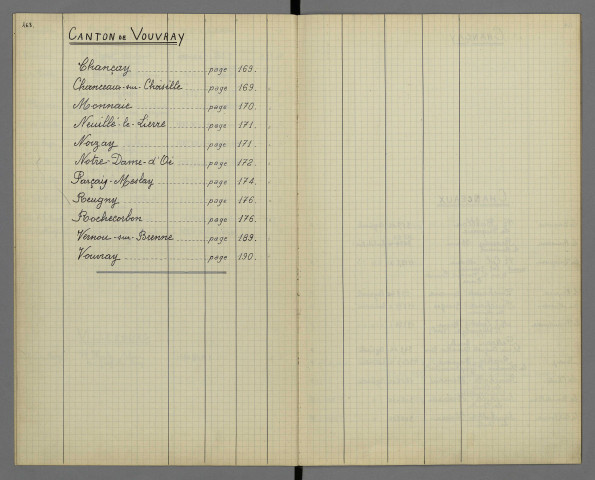 168.
CANTON DE VOUVRAY
Chançay page 169.
Chanceaux-sur-Choisille page 169.
Monnaie page 170.
Neuillé-le-Lierre page 171.
Noizay page 171.
Notre-Dame-d'Oé page 172.
Parçay-Meslay page 174.
Reugny page 176.
Rochecorbon page 176.
Vernou-sur-Brenne page 189.
Vouvray page 190.